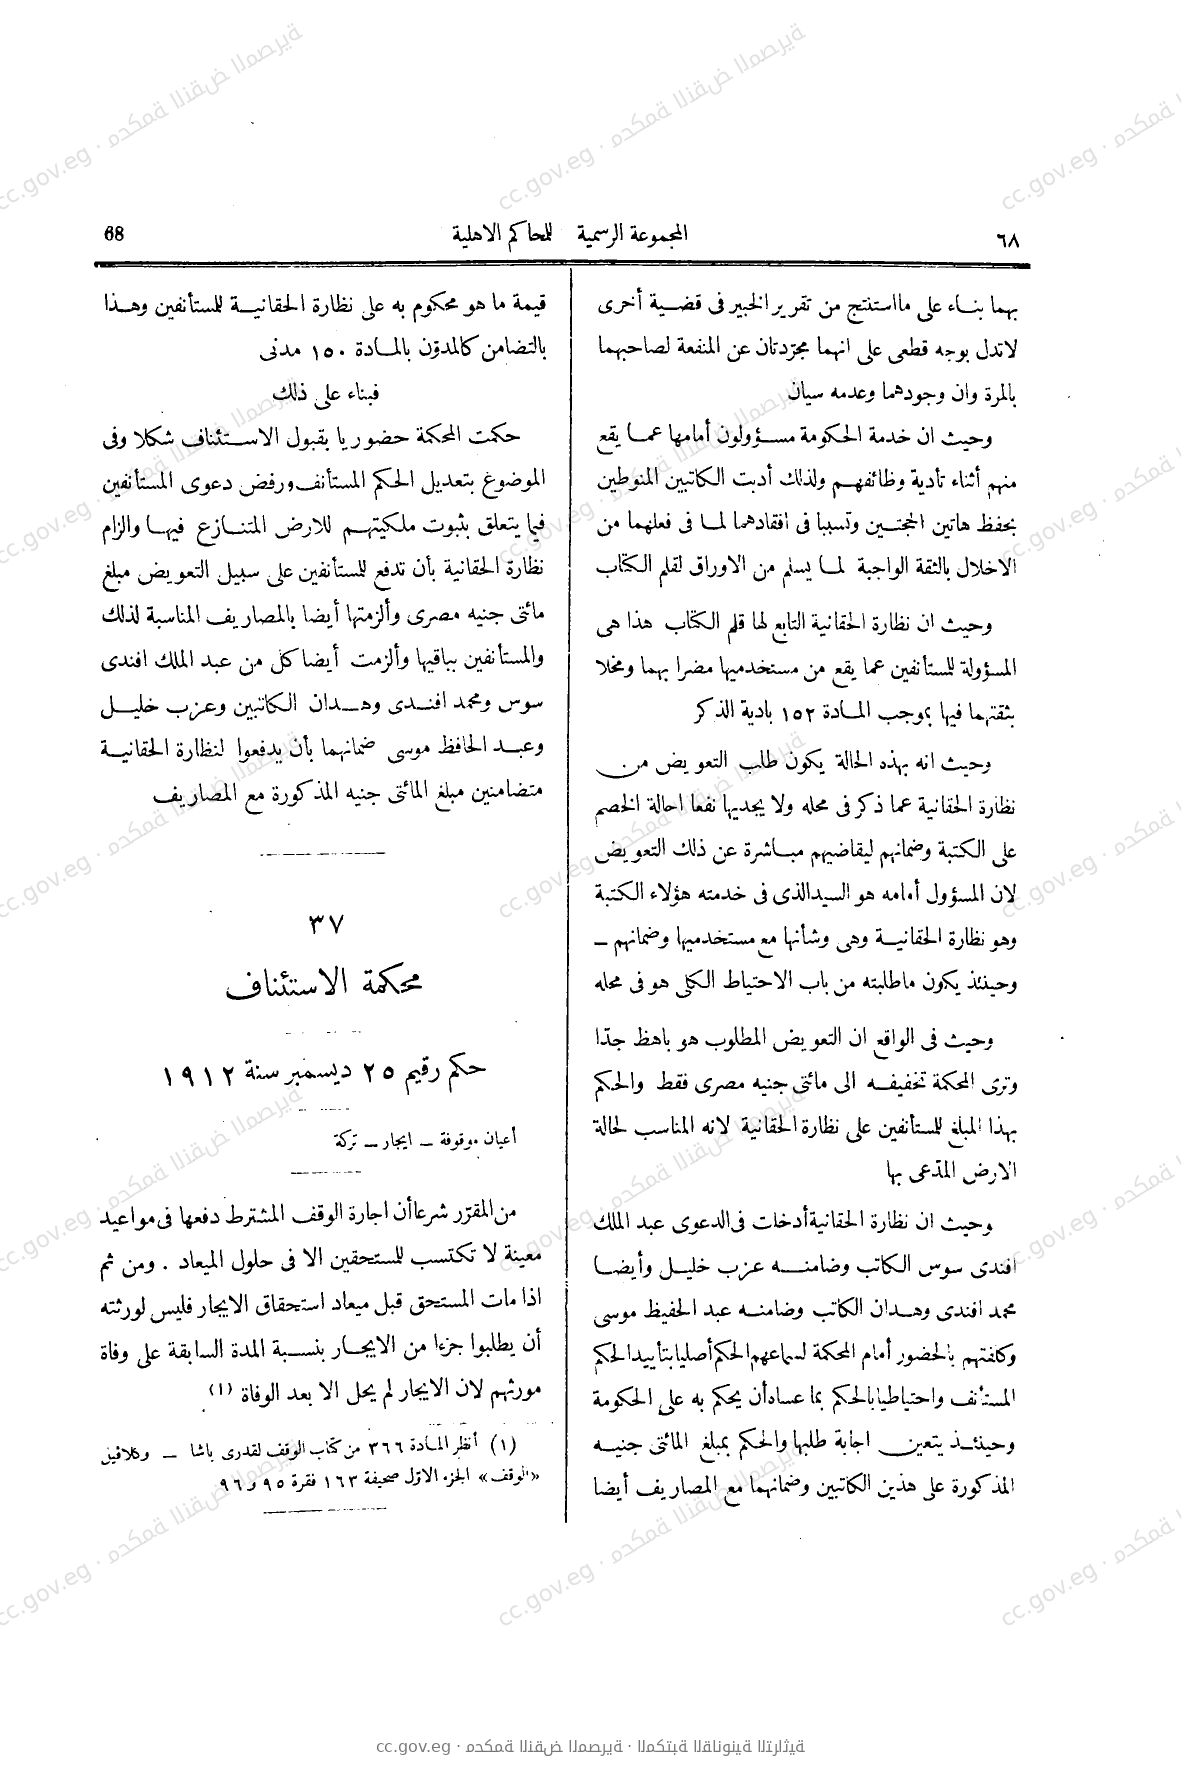 ٦٨
المجموعة الرسمية للمحاكم الاهلية
68
بهما بناء على مااستنتج من تقرير الخبير فى قضية أخرى
لاتدل بوجه قطعى على انهما مجرّدتان عن المنفعة لصاحبهما
بالمرة وان وجودهما وعدمه سيان
وحيث ان خدمة الحكومة مسؤولون أمامها عما يقع
منهم أثناء تأدية وظائفهم ولذلك أدبت الكاتبين المنوطين
بحفظ هاتين الحجتين وتسببا فى افقادهما لما فى فعلهما من
الاخلال بالثقة الواجبة لما يسلم من الاوراق لقلم الكتاب
وحيث ان نظارة الحقانية التابع لها قلم الكتاب هذا هى
المسؤولة للمستأنفين عما يقع من مستخدميها مضرا بهما ومخلا
بثقتهما فيها بموجب المادة ١٥٢ بادية الذكر
وحيث انه بهذه الحالة يكون طلب التعويض من
نظارة الحقانية عما ذكر فى محله ولا يجديها نفعا احالة الخصم
على الكتبة وضمانهم ليقاضيهم مباشرة عن ذلك التعويض
لان المسؤول أمامه هو السيد الذى فى خدمته هؤلاء الكتبة
وهو نظارة الحقانية وهى وشأنها مع مستخدميها وضمانهم –
وحينئذ يكون ماطلبته من باب الاحتياط الكلى هو فى محله
وحيث فى الواقع ان التعويض المطلوب هو باهظ جدّا
وترى المحكمة تخفيفه الى مائتى جنيه مصرى فقط والحكم
بهذا المبلغ للمستأنفين على نظارة الحقانية لانه المناسب لحالة
الارض المدّعى بها
وحيث ان نظارة الحقانية أدخلت فى الدعوى عبد الملك
افندى سوس الكاتب وضامنه عزب خليل وأيضا
محمد افندى وهدان الكاتب وضامنه عبد الحفيظ موسى
وكلفتهم بالحضور أمام المحكمة لسماعهم الحكم أصليا بتأييد الحكم
المستأنف واحتياطيا بالحكم بما عساه أن يحكم به على الحكومة
وحينئذ يتعين اجابة طلبها والحكم بمبلغ المائتى جنيه
المذكورة على هذين الكاتبين وضمانهما مع المصاريف أيضا
قيمة ما هو محكوم به على نظارة الحقانية للمستأنفين وهذا
بالتضامن كالمدوّن بالمادة ١٥٠ مدنى
فبناء على ذلك
حكمت المحكمة حضوريا بقبول الاستئناف شكلا وفى
الموضوع بتعديل الحكم المستأنف ورفض دعوى المستأنفين
فيما يتعلق بثبوت ملكيتهم للارض المتنازع فيها والزام
نظارة الحقانية بأن تدفع للمستأنفين على سبيل التعويض مبلغ
مائتى جنيه مصرى وألزمتها أيضا بالمصاريف المناسبة لذلك
والمستأنفين بباقيها وألزمت أيضا كل من عبد الملك افندى
سوس ومحمد افندى وهدان الكاتبين وعزب خليل
وعبد الحافظ موسى ضمانهما بأن يدفعوا لنظارة الحقانية
متضامنين مبلغ المائتى جنيه المذكورة مع المصاريف
٣٧
محكمة الاستئناف
حكم رقيم ٢٥ ديسمبر سنة ١٩١٢
أعيان موقوفة – ايجار – تركة
من المقرّر شرعا أن اجارة الوقف المشترط دفعها فى مواعيد
معينة لا تكتسب للمستحقين الا فى حلول الميعاد . ومن ثم
اذا مات المستحق قبل ميعاد استحقاق الايجار فليس لورثته
أن يطلبوا جزءا من الايجار بنسبة المدة السابقة على وفاة
مورثهم لان الايجار لم يحل الا بعد الوفاة (١)
(١) أنظر المادة ٣٦٦ من كتاب الوقف لقدرى باشا – وكلافيل
«الوقف» الجزء الاوّل صحيفة ١٦٣ فقرة ٩٥ و ٩٦
cc.gov.eg · محكمة النقض المصرية · المكتبة القانونية التراثية